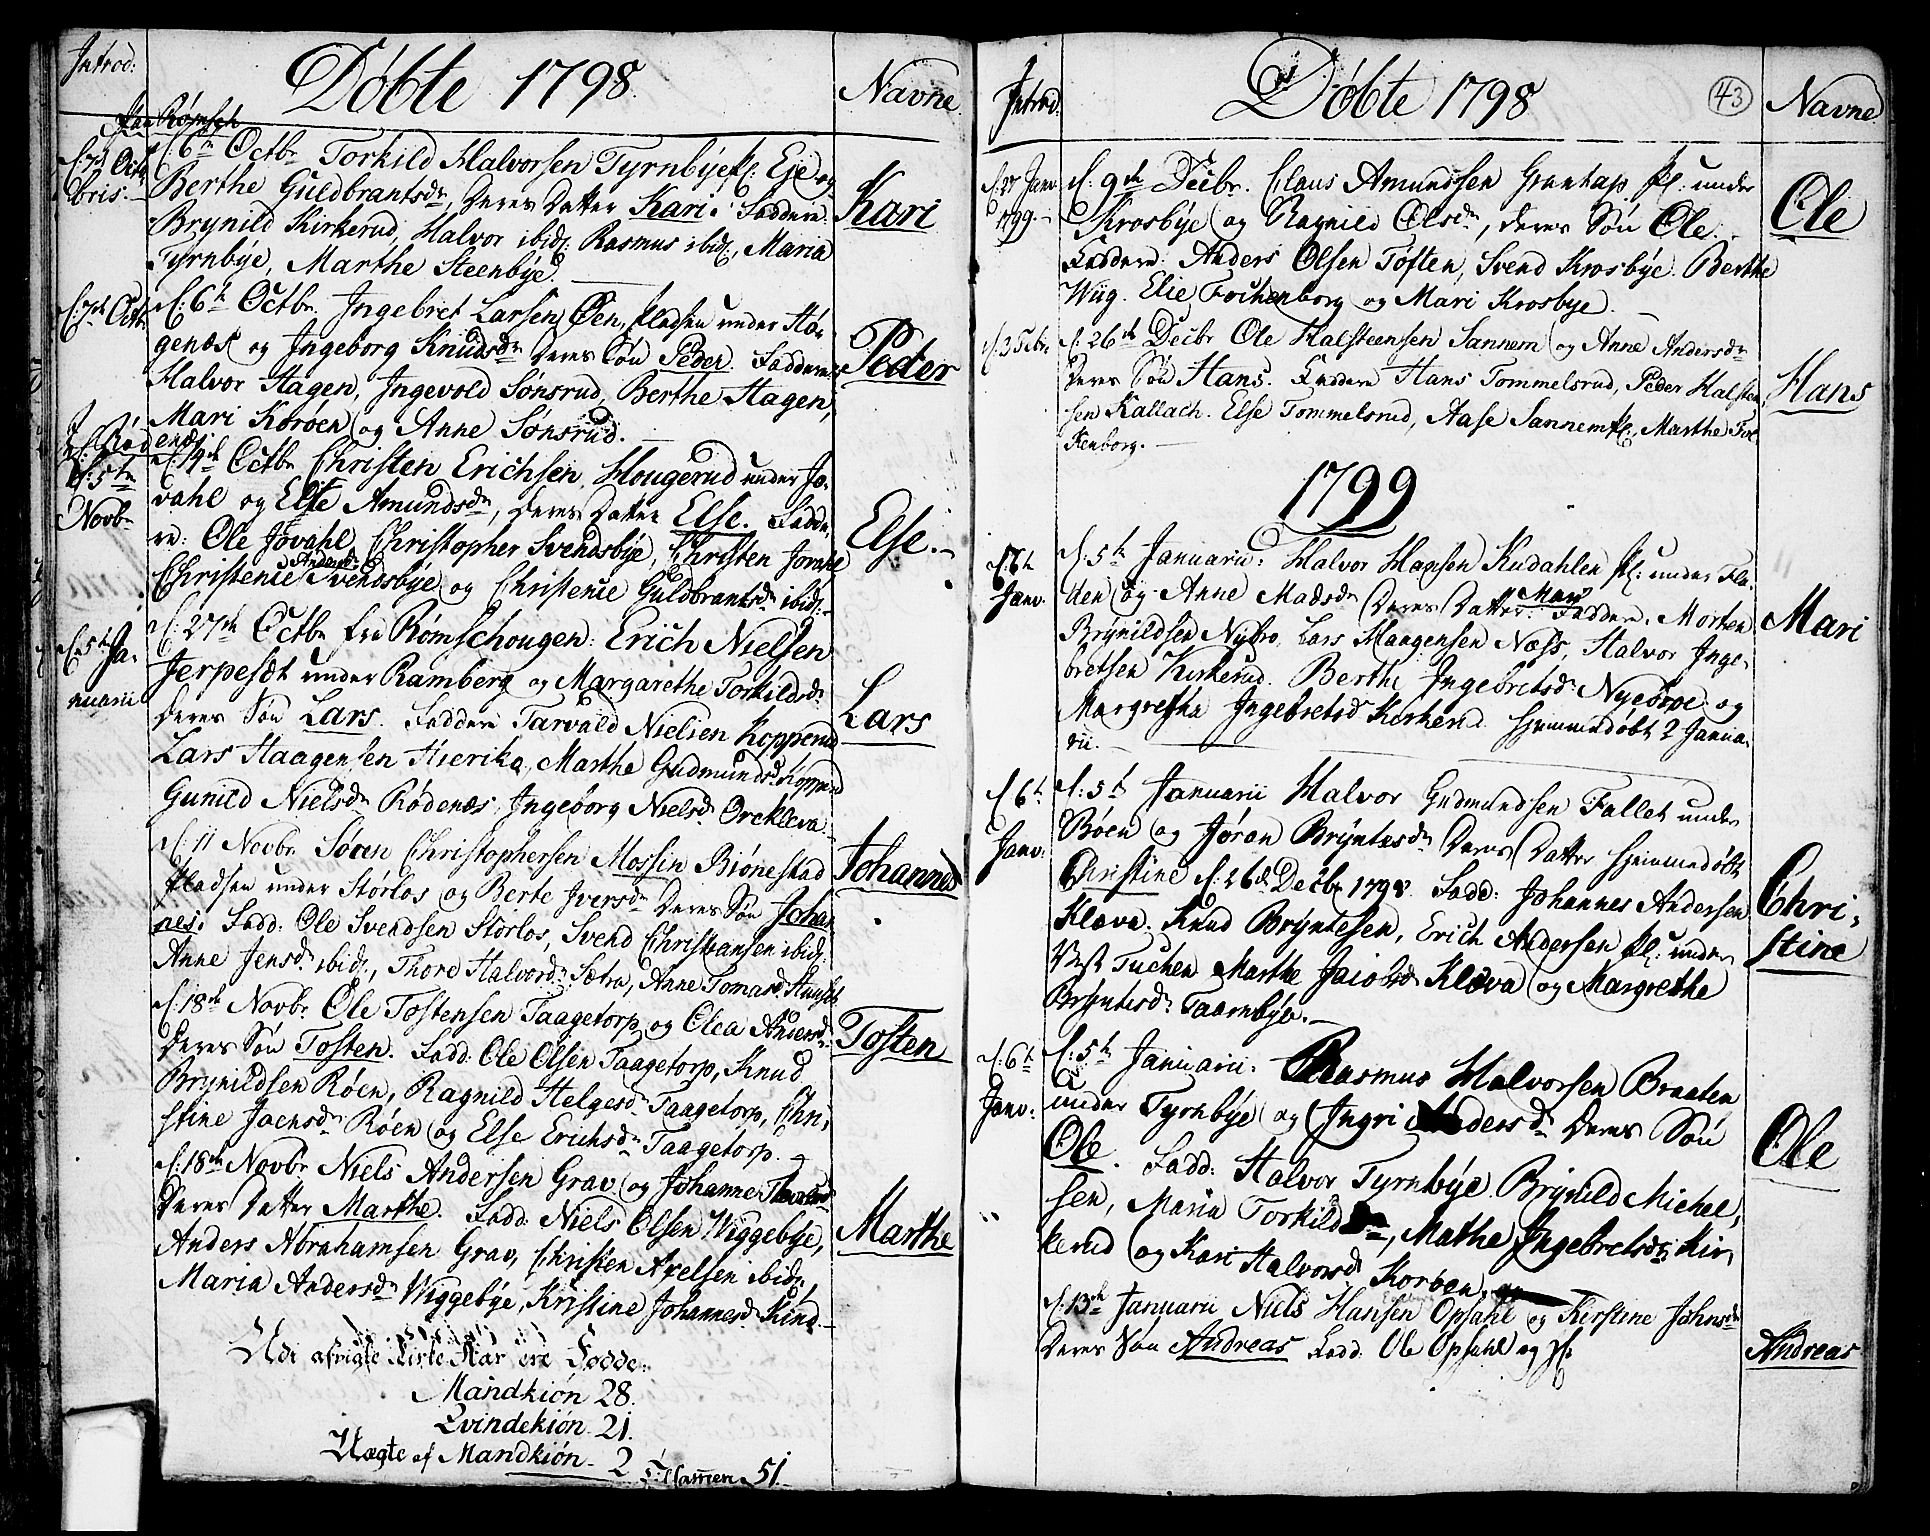 Introd:
Døbte 1798.
Navne
fra Rømsch
d: 7d Octobris.
d: 6te Octbr Torkild Halvorsen Tyrnbye pl: Eje og
Berthe Guldbrantsdr, deres Datter Kari. Faddere:
Kari
Brynild Kirkerud, Halvor ibid: Rasmus ibid, Maria
Tyrnbye, Marthe Steenbye.
d: 7de Octbr
d: 6te Octbr. Ingebret Larsen Øen, Pladsen under Hau-
genæs og Ingeborg Knudsdr deres Søn Peder. Faddere:
Peder
Halvor Hagen, Ingevold Sønsrud, Berthe Hagen,
Mari Korøen og Anne Sønsrud.
i Rødenæs:
d: 5te Novbr
d: 14de Octbr Christen Erichsen Hougerud under Jo-
vahl og Else Amundsdr, deres Datter Else. Fadde-
Else.
re: Ole Jovahl, Christopher Svendsbye, Christen Jovahl
Christenie Andersdr Svendsbye og Christenie Guldbrantsdr ibid:
d: 5te Januarii
d: 27de Octbr fra Rømschougen: Erich Nielsen
Jerpesæt under Ramberg og Margarethe Torkildsdr
Lars
deres Søn Lars. Faddere Tarvald Nielsen Kopperud
Lars Haagensen Hierika, Marthe Gudmundsdr Kopperud
Gunild Nielsdr Rødenæs, Ingeborg Nielsdr Orckleva
d: 11 Novbr Søren Christophersen Mossin Biønestad
Johannes
Pladsen under Størlos og Berte Iversdr deres Søn Johan
nes: Fadd: Ole Svendsen Størlos, Svend Christiansen ibid:
Anne Jensdr ibid:, Thore Halvordr Sætra, Anne Tomasdr
d: 18de Novbr Ole Tostensen Taagetorp og Olea Andersdr
Tosten
deres Søn Tosten. Fadd: Ole Olsen Taagetorp, Knud
Brynildsen Røen, Ragnild Helgesdr Taagetorp, Chri-
stine Joensdr Røen og Else Erichsdr Taagetorp.
d: 18de Novbr Niels Andersen Grav og Johanne
deres Datter Marthe. Fadd: Niels Olsen Wiggebye,
Marthe
Anders Abrahamsen Grav, Christen Axelsen ibid:,
Maria Andersdr Wiggebye, Kristine Johannesd: Kind.
Udi afvigte Kirke Aar ere Fødde:
Mandkiøn 28.
Qvindekiøn 21.
Uægte af Mandkiøn 2
Sammen 51.
Introd:
Døbte 1798
43
Navne
d: 27 Janv 1799.
d: 9de Decbr. Claus Amundsen Grantap pl: under
Ole
Krosbye og Ragnild Olsdr, deres Søn Ole.
Faddere: Anders Olsen Toften, Svend Krosbye. Berthe
Wiig. Elie Fochenborg og Mari Krosbye.
d: 3 Febr.
d: 26de Decbr Ole Halsteensen Sannem og Anne Andersdr
Hans
deres Søn Hans. Faddere Hans Tommelsrud, Peder Halsten
sen Kallach. Else Tommelsrud, Aase Sannem pl, Marthe Foc
kenborg.
1799
d. 6te Janv.
d: 5te Januarii: Halvor Hansen Kudahlen pl: under Fla-
den og Anne Madsdr deres Datter Mari. Faddere. Morten
Mari
Brynildsen Nybro, Lars Haagensen Næss, Halvor Inge-
bretsen Kirkerud. Berthe Ingebretsdr Nyebroe og
Margretha Ingebretsd Kirkerud. hjemmedøbt 2 Janua-
rii.
d 6te Janv:
d: 5te Januarii Halvor Gudmundsen Fallet under
Bøen og Jøran Bryntesdr deres Datter hjemmedøbt
Christine
Christine d: 26d Decbr 1798. Fadd: Johannes Andersen
Kleva. Knud Bryntesen, Erich Andersen pl: under
Vest Tuchen Marthe Jacobsd Kleva og Margrethe
Bryntesdr Taarnbye.
d: 6te Janv:
d: 5te Januarii. Rasmus Halvorsen Braaten
under Tyrnbye og Ingri Andersdr deres Søn
Ole
Ole. Fadd: Halvor Tyrnbye Brynild Michel-
sen, Maria Torkildsdr, Mathe Ingebretsdr Kir-
kerud og Kari Halvorsdr Korøen.
d: 13de Januarii Niels Hansen Opsahl og Kirstine Johnsdr
Andreas
deres Søn Andreas Fadd: Ole Opsahl og pl: